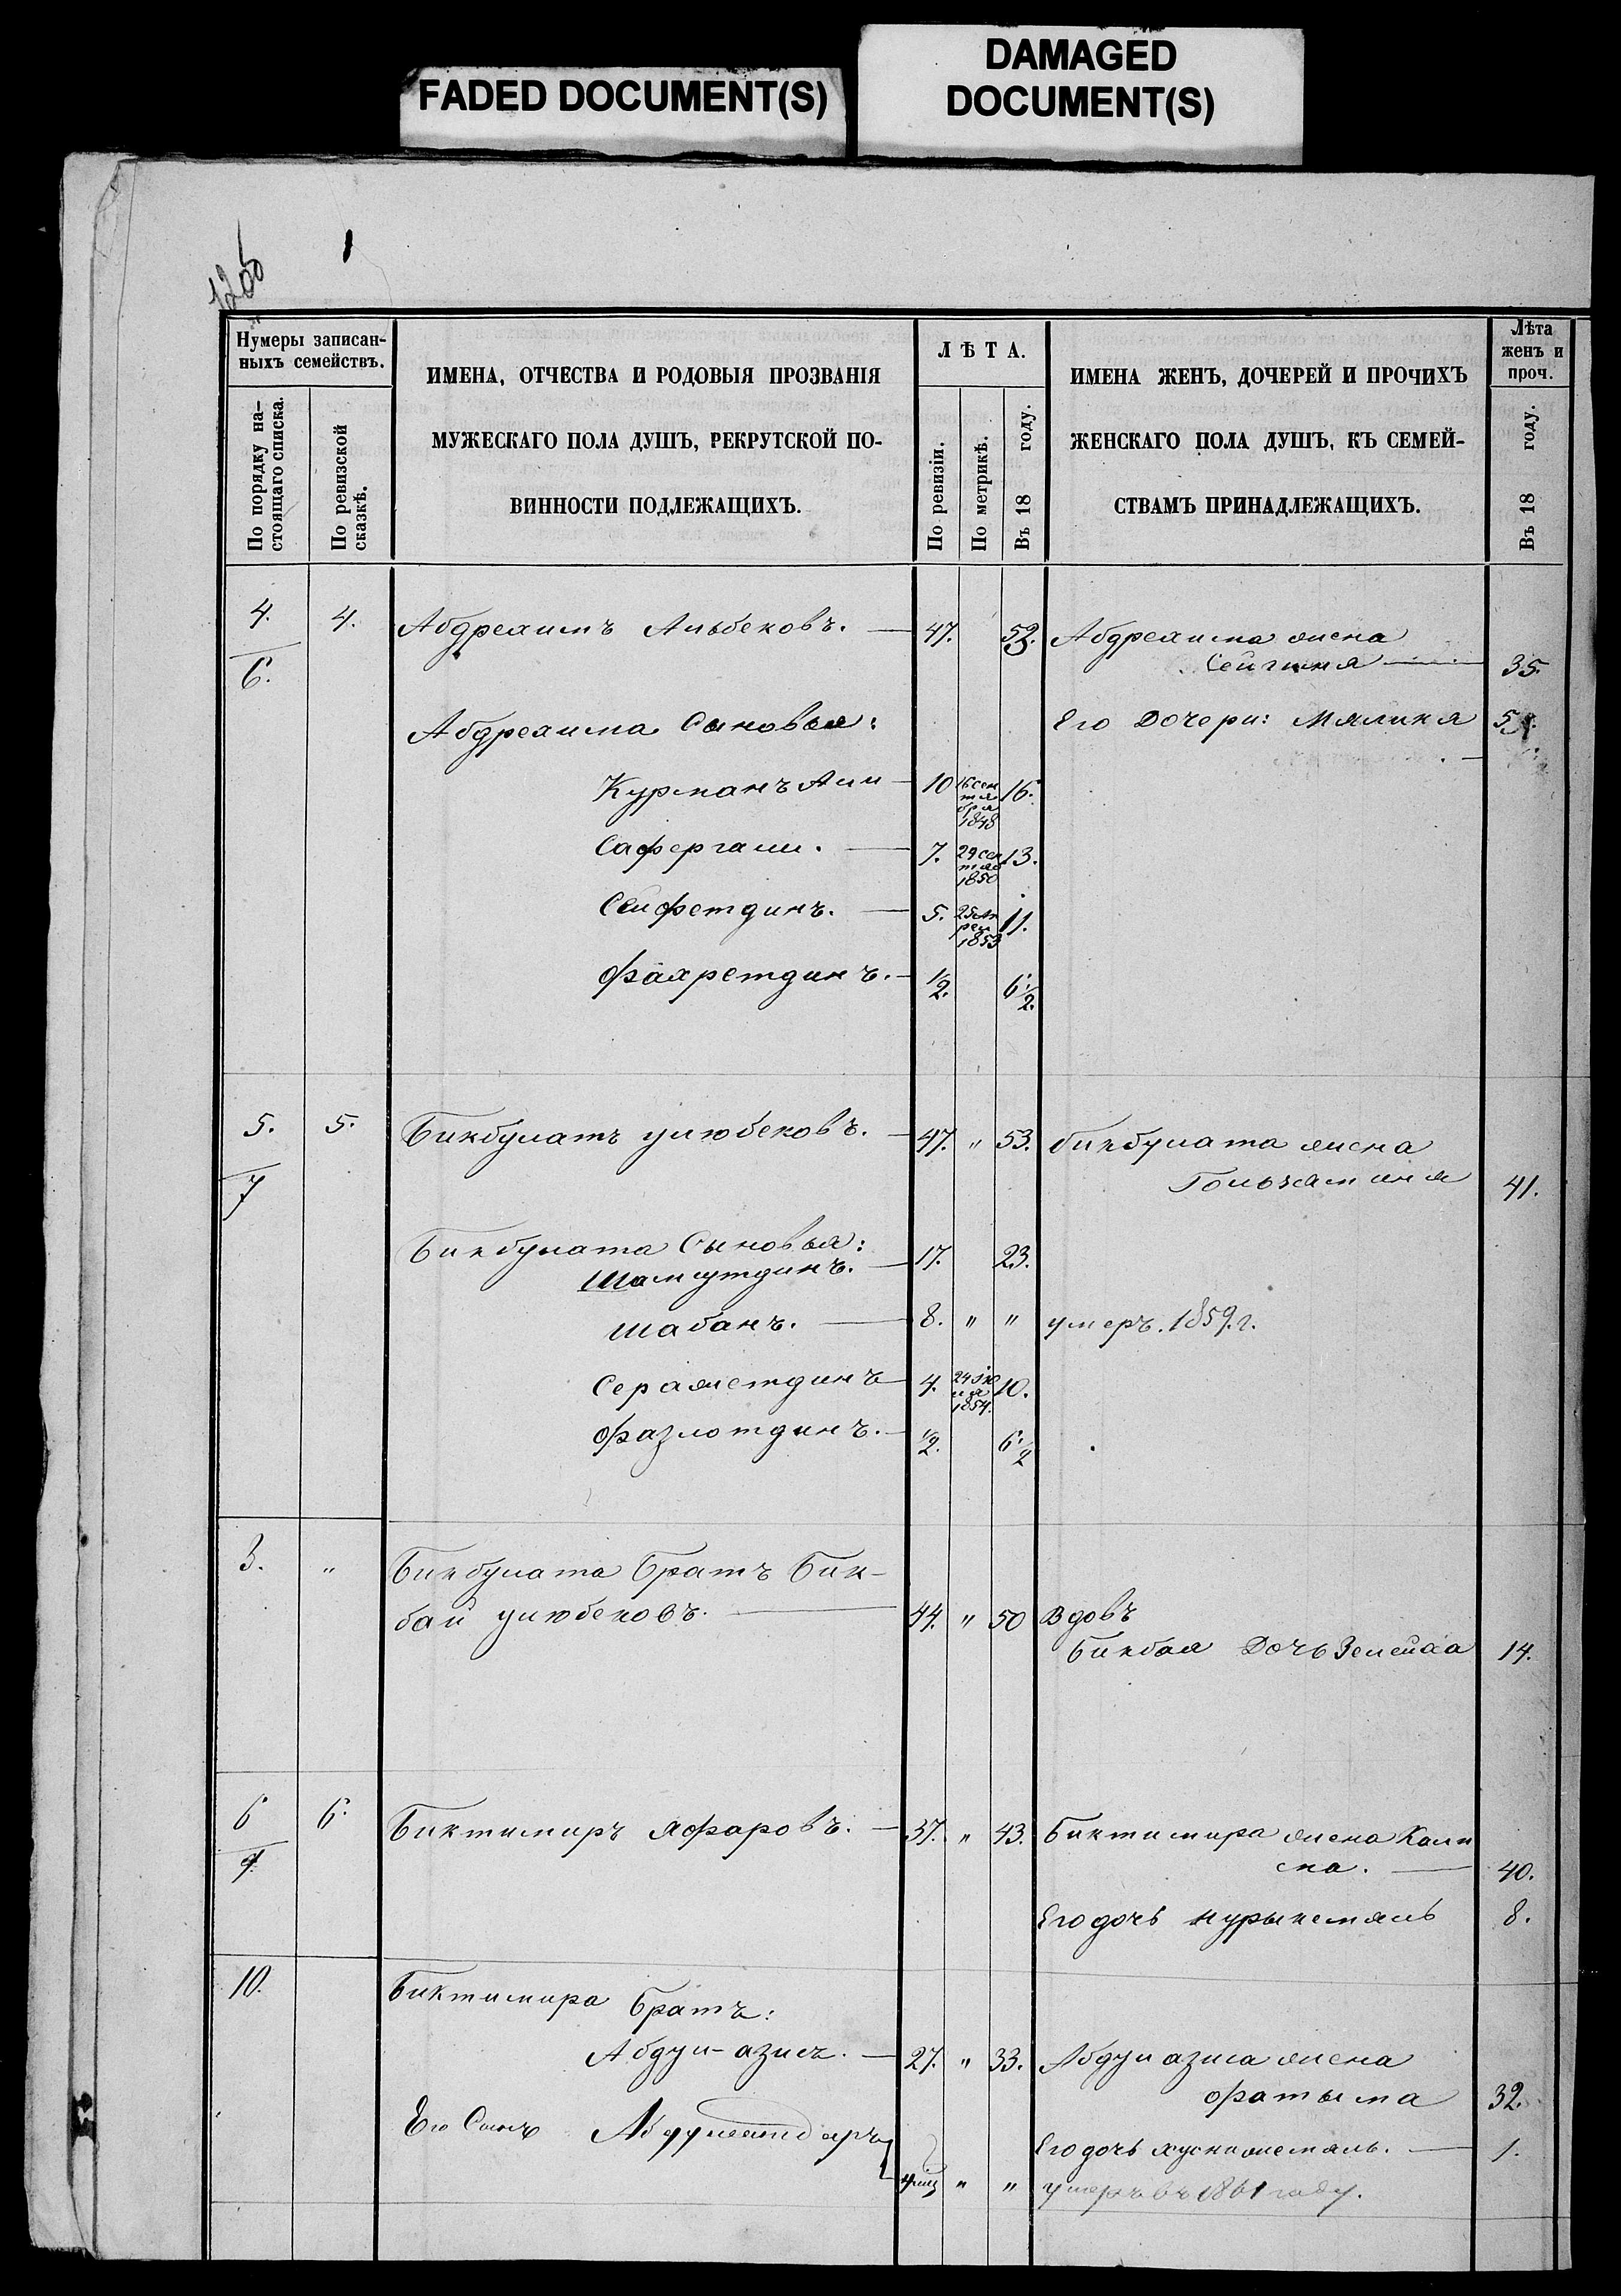 FADED DOCUMENT(S)
DAMAGED
DOCUMENT(S)
Нумеры записан-
ныхъ семействъ.
По порядку на-
стоящаго списка.
По ревизской
сказкѣ.
ИМЕНА, ОТЧЕСТВА И РОДОВЫЯ ПРОЗВАНІЯ
МУЖЕСКАГО ПОЛА ДУШЪ, РЕКРУТСКОЙ ПО-
ВИННОСТИ ПОДЛЕЖАЩИХЪ.
ЛѢТА.
По ревизіи.
По метрикѣ.
Въ 18 году.
ИМЕНА ЖЕНЪ, ДОЧЕРЕЙ И ПРОЧИХЪ
ЖЕНСКАГО ПОЛА ДУШЪ, КЪ СЕМЕЙ-
СТВАМЪ ПРИНАДЛЕЖАЩИХЪ.
Лѣта
женъ и
проч.
Въ 18 году.
4. 4. Абдрехимъ Альбековъ. — 47. 52. Абдрехима жена
6. — 35.
Абдрехима Сыновья: Его Дочери: Мялика
Курманъ Али — 10 16 сен тя бря 1848 16.
Сафергали. — 7. 29 сен тяб 1850 13.
Сейфетдинъ. — 5. 25 Ап рел 1853 11.
Фахретдинъ. — 1/2. 6 1/2.
5. 5. Бикбулатъ улюбековъ. — 47. " 53. бикбулата жена
7 41.
Бикбулата Сыновья:
Шамутдинъ. — 17. 23.
шабанъ. — 8. " " умеръ. 1859. г.
Сераметдинъ — 4. 24 Ію ля 1854. 10.
Фазлотдинъ. — 1/2. 6 1/2
" Бикбулата братъ Бик-
бай улюбековъ. — 44. " 50 Вдовъ
Бикбая Дочь Зелейха 14.
6 6. Биктимиръ яфаровъ. — 37. " 43. Биктимира жена Кали
ма. — 40.
Его дочь нурыжемаль 8.
10. Биктимира братъ:
Абдул-азисъ. — 27. " 33. Абдул азиса жена
фатыма 32.
Его Сынъ Его дочь хуснижемаль. — 1.
" " умеръ въ 1861 году.